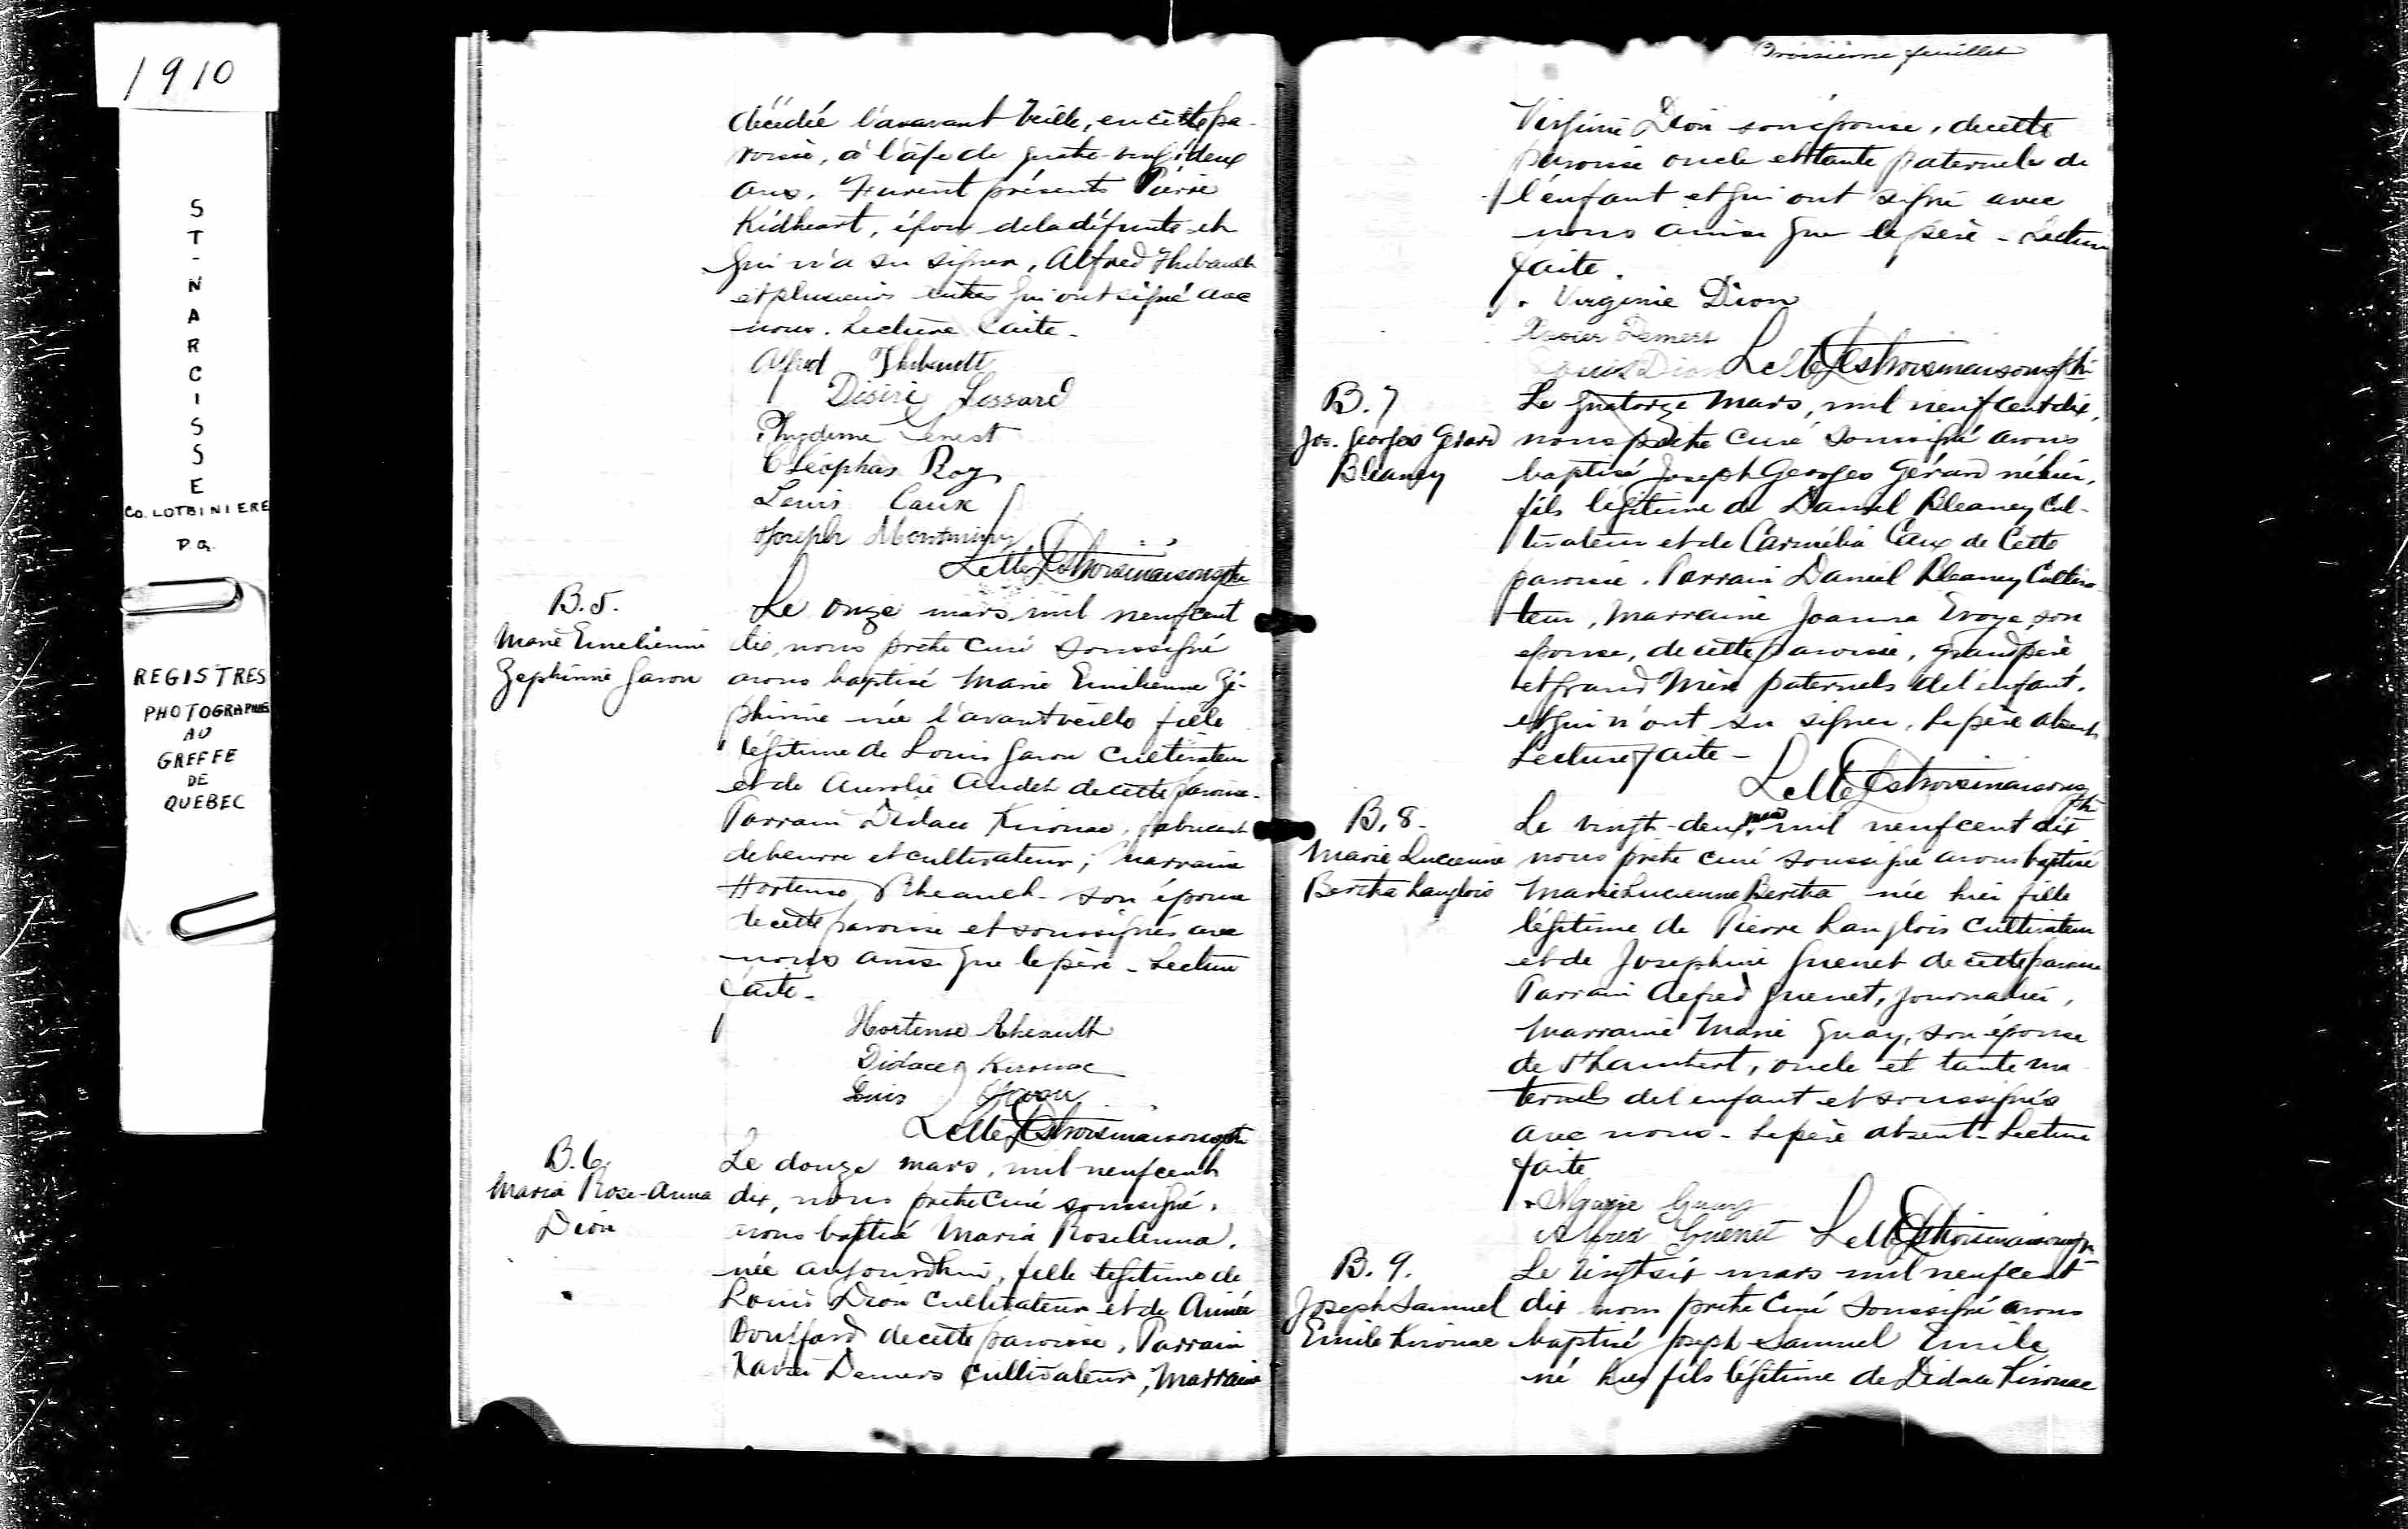 1910
ST-NARCISSE
CO. LOTBINIERE
P.Q.
REGISTRES
PHOTOGRAPHIÉS
AU
GREFFE
DE
QUEBEC
décédée l'avavant veille, en cette pa-
roisse, à l'âge de quatre-vingt deux
ans. Furent présents Pierre
Kidheart, époux de la défunte et
qui n'a su signer, Alfred Thibault
et plusieurs autres qui ont signé avec
nous. Lecture faite.
Alfred Thibault
Désiré Lessard
Phydime Genest
Cléophas Roy
Louis Caux
Joseph Montminy
Destroismaisons ptr
B.5.
Marie Emelienne
Zephirine Garon
Le onze mars, mil neuf cent
dix, nous prêtre curé soussigné
avons baptisé Marie Emilienne Zé-
phirine née l'avant veille fille
légitime de Louis Garon cultivateur
et de Aurelie Audet de cette paroisse.
Parrain Didace Kirouac, fabricant
de beurre et cultivateur; marraine
Hortense Rheault son épouse
de cette paroisse et soussignés avec
nous ainsi que le père - Lecture
faite.
Hortense Rheault
Didace Kirouac
Louis Garon
Destroismaisons ptr
B.6.
Maria Rose-Anna
Dion
Le douze mars, mil neuf cent
dix, nous prêtre curé soussigné,
avons baptisé Maria Rose Anna,
née aujourd'hui, fille légitime de
Louis Dion cultivateur et de Aimée
Bouffard de cette paroisse, Parrain
Xavier Demers cultivateur, Marraine
Troisième feuillet
Virginie Dion son épouse, de cette
paroisse oncle et tante paternels de
l'enfant et qui ont signé avec
nous ainsi que le père - Lecture
faite.
Virginie Dion
Xavier Demers
Louis Dion Destroismaisons ptr
B.7
Jos. Georges Gérard
Bleaney
Le quatorze Mars, mil neuf cent dix,
nous prêtre curé soussigné avons
baptisé Joseph Georges Gérard né hier,
fils légitime de Daniel Bleaney Cul-
tivateur et de Carmélia Caux de Cette
paroisse. Parrain Daniel Bleaney Cultiva-
teur, Marraine Joanna Evoye, son
épouse, de cette paroisse, grand père
et grand Mère paternels de l'enfant,
et qui n'ont su signer, le père absent
Lecture faite -
Destroismaisons ptr
B.8.
Marie Lucienne
Bertha Langlois
Le vingt-deux mars mil neuf cent dix
nous prêtre curé soussigné avons baptisé
Marie Lucienne Bertha née hier fille
légitime de Pierre Langlois Cultivateur
et de Josephine Guenet de cette paroisse
Parrain Alfred Guenet, journalier,
Marraine Marie Guay, son épouse
de St Lambert, oncle et tante ma
ternels de l'enfant et soussignés
avec nous - Le père absent - Lecture
faite
Marie Guay
Alfred Guenet Destroismaisons ptr
B.9.
Joseph Samuel
Emile Kirouac
Le vingt six mars mil neuf cent
dix nous prêtre Curé Soussigné avons
baptisé Joseph Samuel Emile
né hier fils légitime de Didace Kirouac